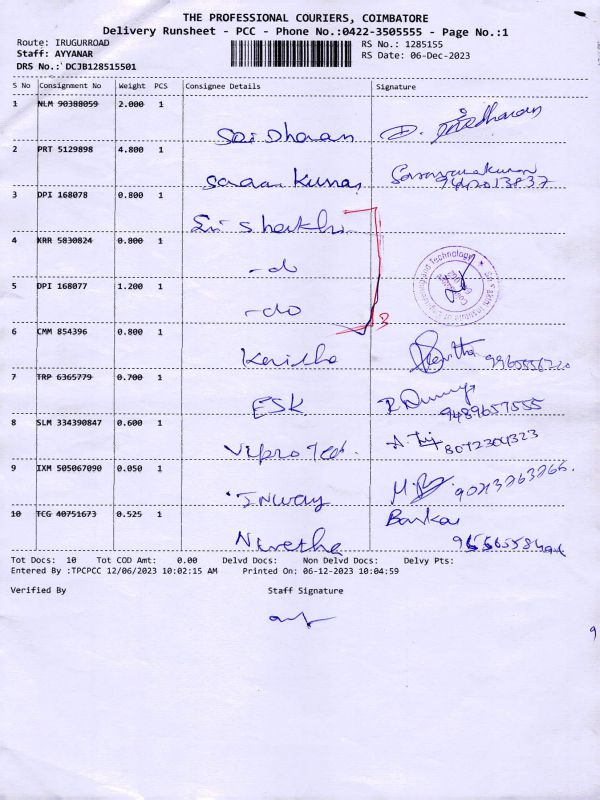 THE PROFESSIONAL COURIERS, COIMBATORE
Delivery Runsheet - PCC - Phone No.:0422-3505555 - Page No.:1
Route: IRUGURROAD
Staff: AYYANAR
DRS No.: DCJB128515501
RS No.: 1285155
RS Date: 06-Dec-2023
S No Consignment No Weight PCS Consignee Details Signature
1 NLM 90388059 2.000 1
Sai Dharan
2 PRT 5129898 4.800 1
Saravana Kumar
9442013837
3 DPI 168078 0.800 1
Sri
4 KRR 5830824 0.800 1
-do
5 DPI 168077 1.200 1
-do 3
6 CMM 854396 0.800 1
Kavitha Kavitha
7 TRP 6365779 0.700 1
ESK 9489657555
8 SLM 334390847 0.600 1
Vipro Tec. 8072304323
9 IXM 505067090 0.050 1
INWAY M.
10 TCG 40751673 0.525 1
Nivetha
Tot Docs: 10 Tot COD Amt: 0.00 Delvd Docs: Non Delvd Docs: Delvy Pts:
Entered By :TPCPCC 12/06/2023 10:02:15 AM Printed On: 06-12-2023 10:04:59
Verified By Staff Signature
9